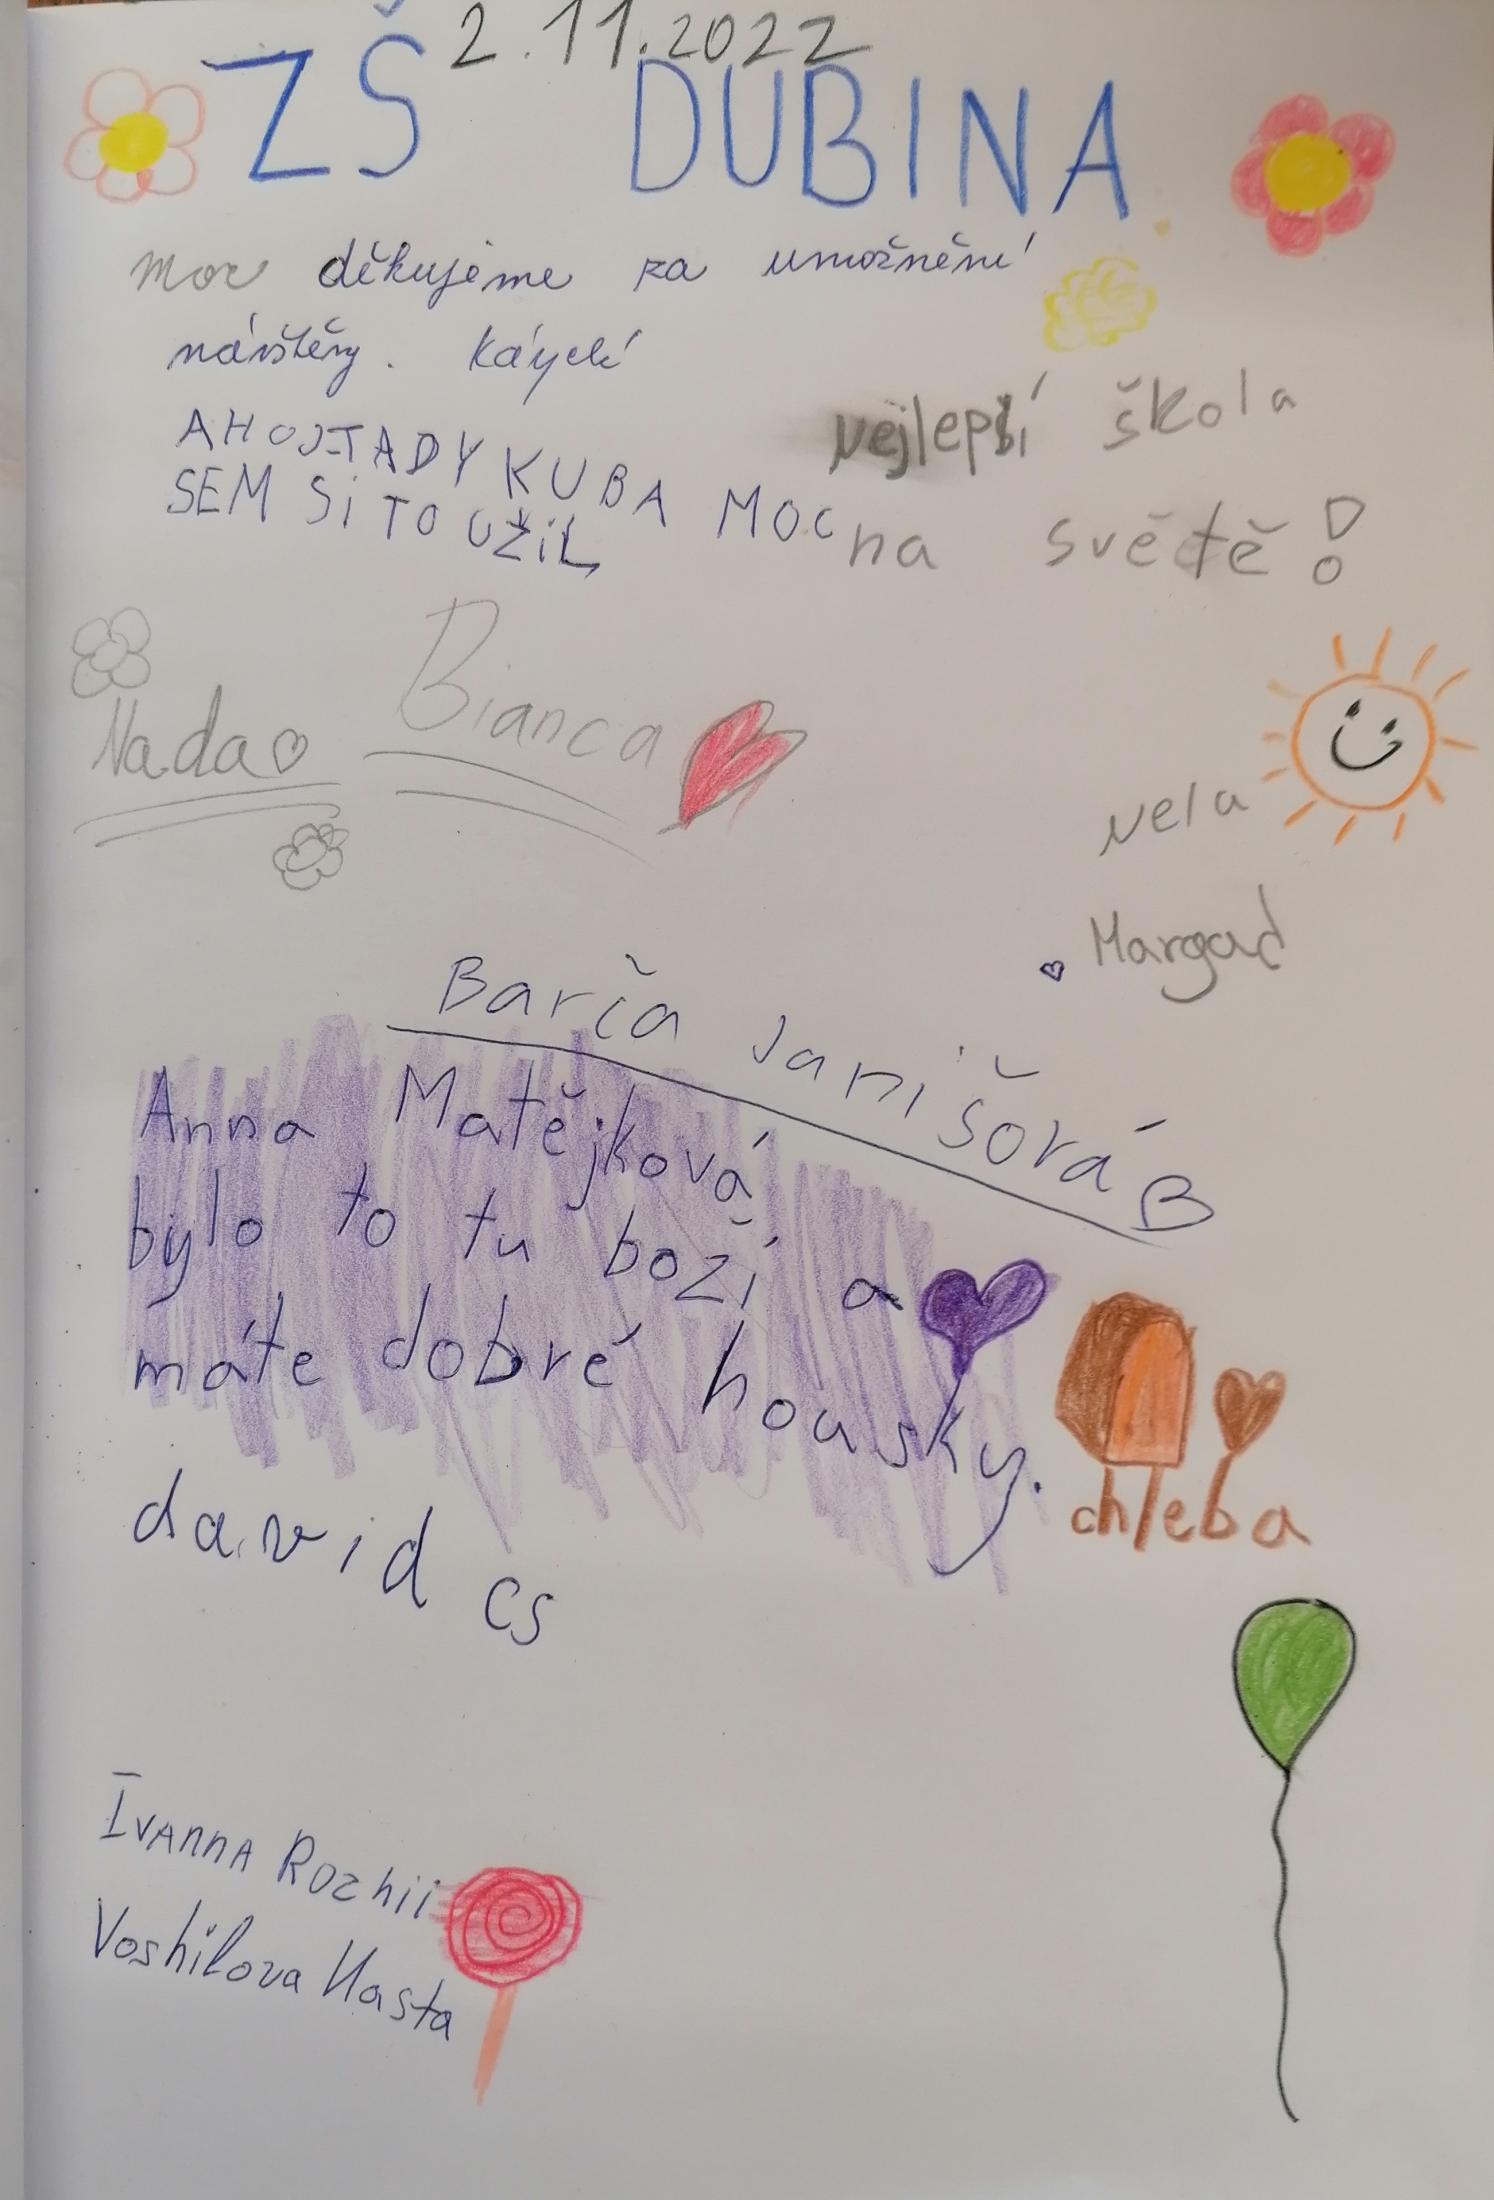 2.11.2022
ZŠ DUBINA
moc děkujeme za umožnění
návštěvy.
nejlepší škola
na světě!
AHOJ TADY KUBA MOC
SEM SI TO UŽIL
Bianca
Nada
nela
Margad
Barča Janišová B
Anna Matějková
bylo to tu boží a
máte dobré housky.
chleba
david cs
IVANNA ROZhii
Voshilova Nasta